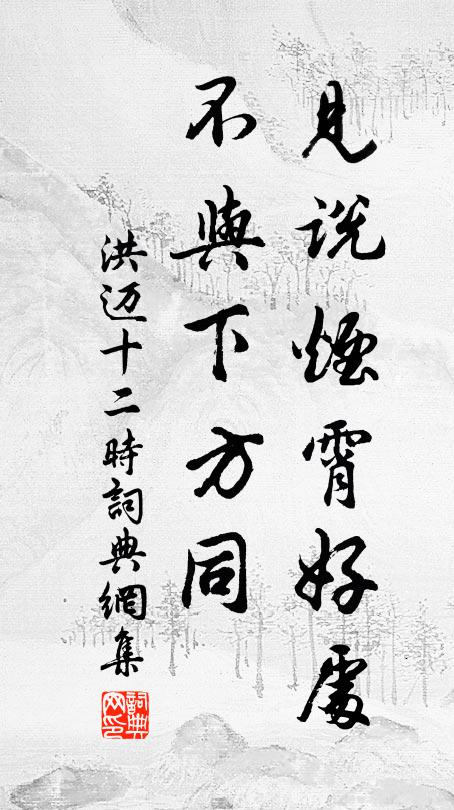 見説煙霄好處
不與下方同
洪迈十二時詞典網集
詞典网印